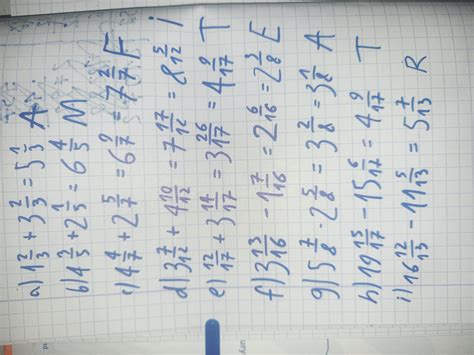 a) 1 2/3 + 3 2/3 = 5 1/3 A
b) 4 2/5 + 2 1/5 = 6 4/5 M
c) 4 4/7 + 2 5/7 = 6 9/7 = 7 2/7 F
d) 3 7/12 + 4 10/12 = 7 17/12 = 8 5/12 i
e) 12/17 + 3 14/17 = 3 26/17 = 4 9/17 T
f) 3 13/16 - 1 7/16 = 2 6/16 = 2 3/8 E
g) 5 7/8 - 2 5/8 = 3 2/8 = 3 1/8 A
h) 19 15/17 - 15 6/17 = 4 9/17 T
i) 16 12/13 - 11 5/13 = 5 7/13 R